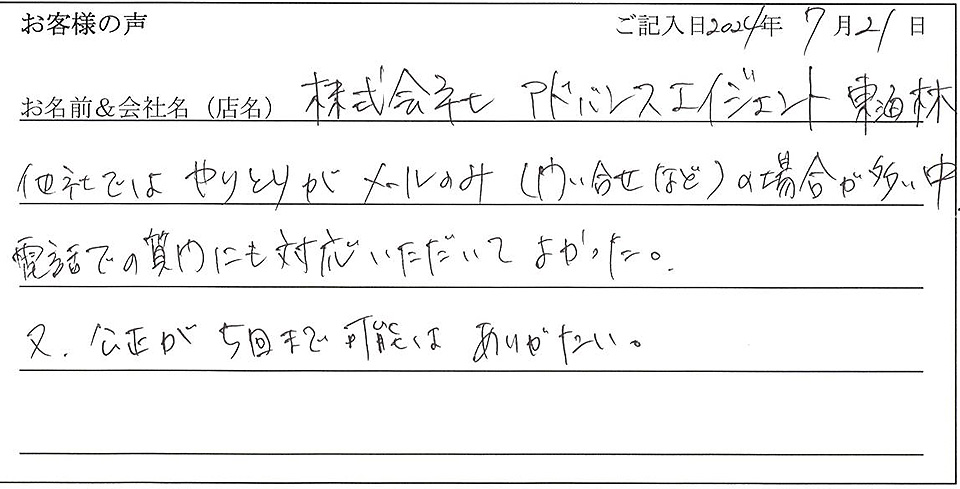 お客様の声 ご記入日2024年 7月21日
お名前&会社名（店名） 株式会社 アドバンスエイジェント 東海林
他社では やりとりが メールのみ（問い合せなど）の場合が多い中、
電話での質問にも対応いただいて よかった。
又、公正が 5回まで 可能は ありがたい。